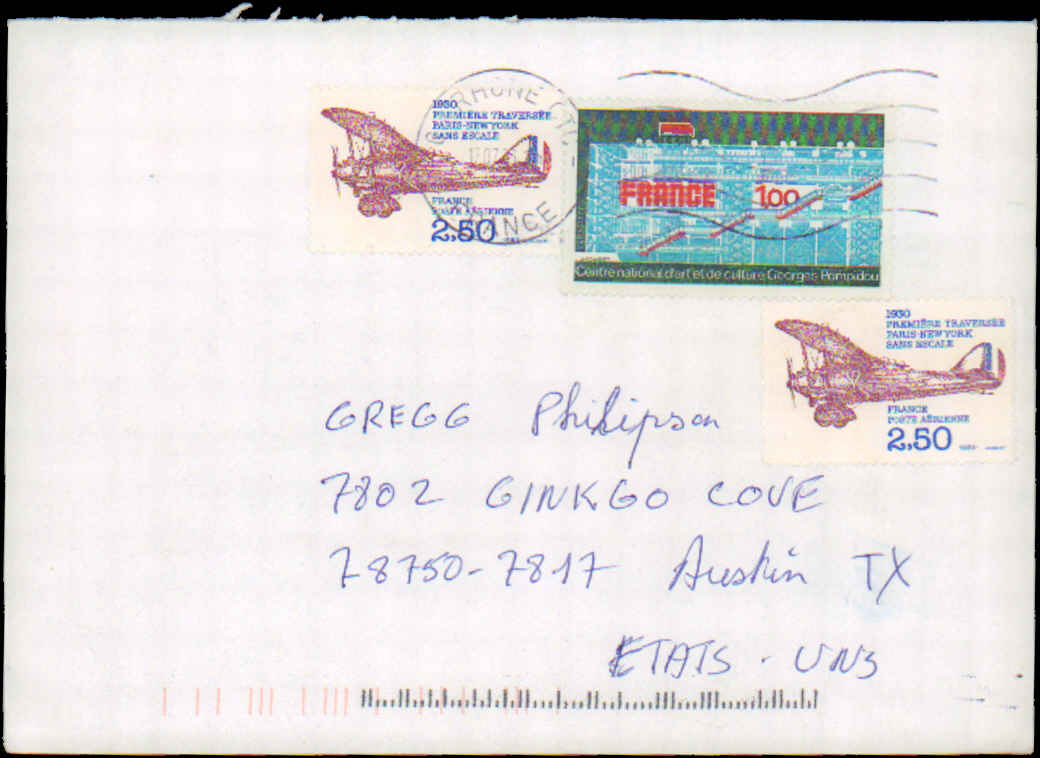 1930
PREMIÈRE TRAVERSÉE
PARIS-NEW YORK
SANS ESCALE
FRANCE
POSTE AÉRIENNE
2,50
RHONE
FRANCE
FRANCE
1,00
Centre national d'art et de culture Georges Pompidou
1930
PREMIÈRE TRAVERSÉE
PARIS-NEW YORK
SANS ESCALE
FRANCE
POSTE AÉRIENNE
2,50
GREGG Philipson
7802 GINKGO COVE
78750-7817 Austin TX
ETATS - UNIS